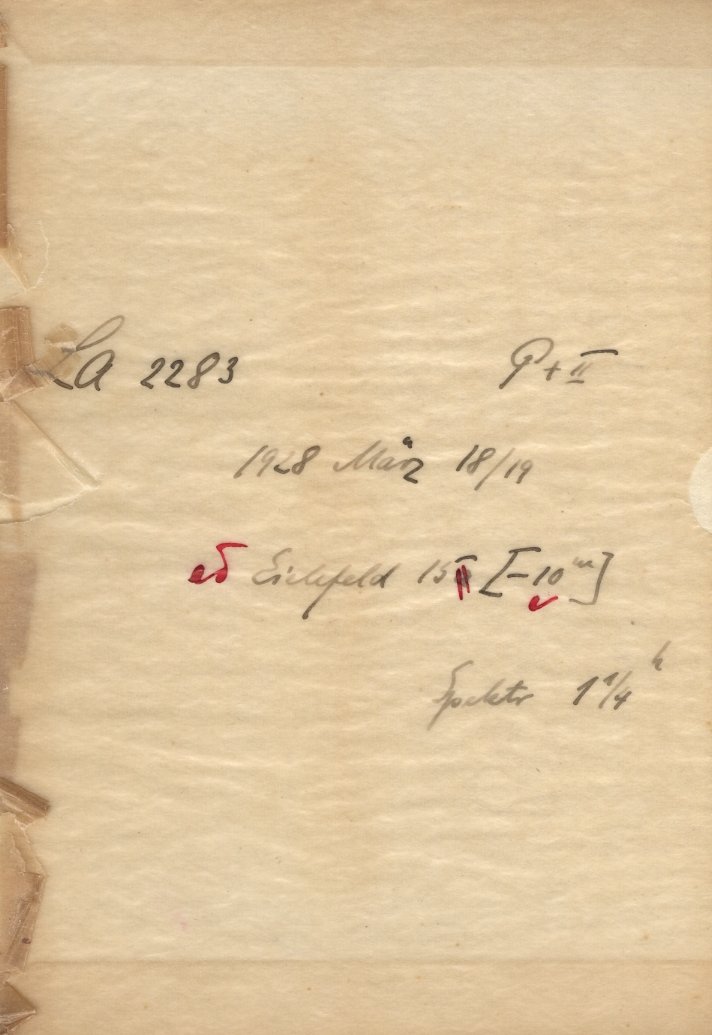 La 2283 P + II
1928 März 18/19
Eichfeld 15 [-10ᵐ]
Spektr 1 1/4 ʰ